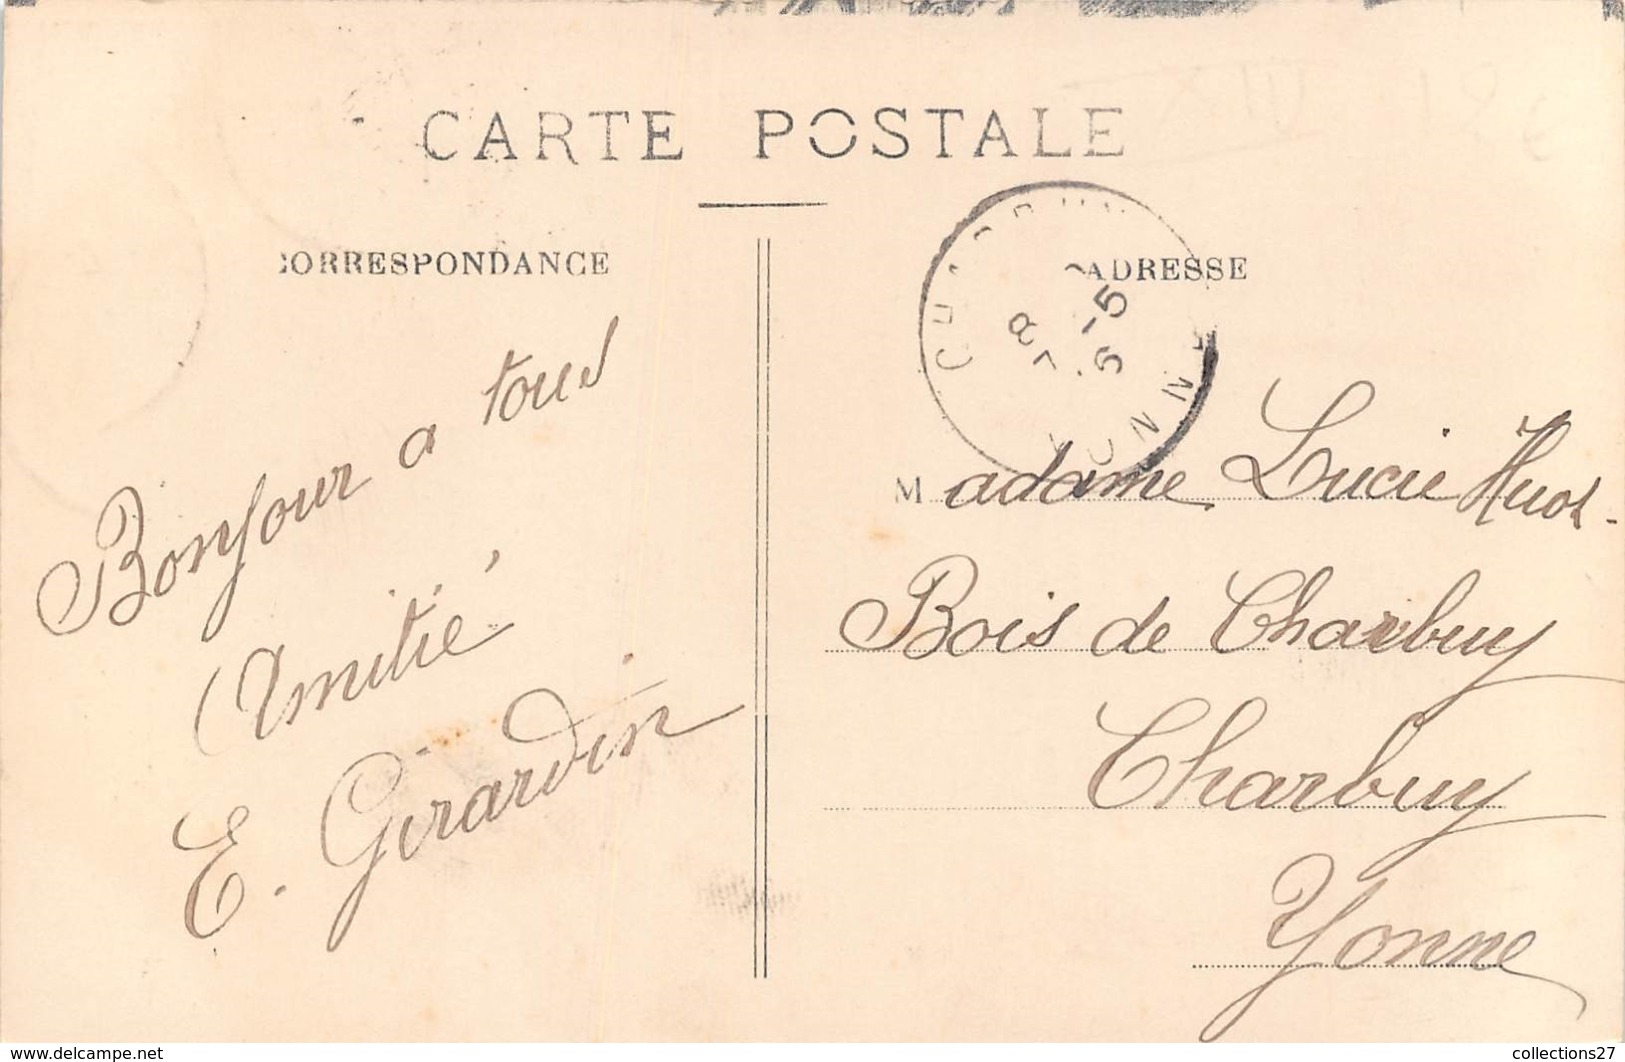 CARTE POSTALE
CORRESPONDANCE
ADRESSE
Bonjour a tous
Amitié
E. Girardin
8 -5
Madame Lucie Huot
Bois de Charbuy
Charbuy
Yonne
www.delcampe.net
collections27